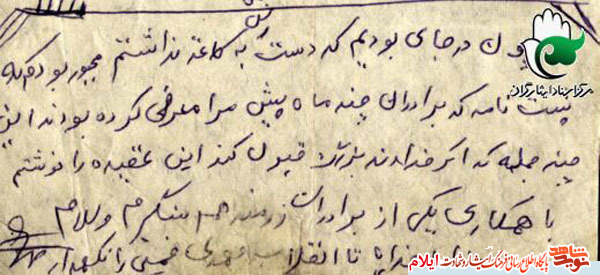 چون در جای بودیم که دست به کاغذ نداشتم مجبور بودم که
پشت نامه که برادران چند ماه پیش مرا معرفی کرده بودند این
چند جمله که اگر خداوند بزرگ قبول کند این عقیده را نوشتم
با همکاری یکی از برادران رزمنده هم سنگرم والسلام
تا انقلاب مهدی خمینی را نگهدار
مرکز اسناد ایثارگران
نوید شاهد
پایگاه اطلاع رسانی فرهنگ ایثار و شهادت ایلام